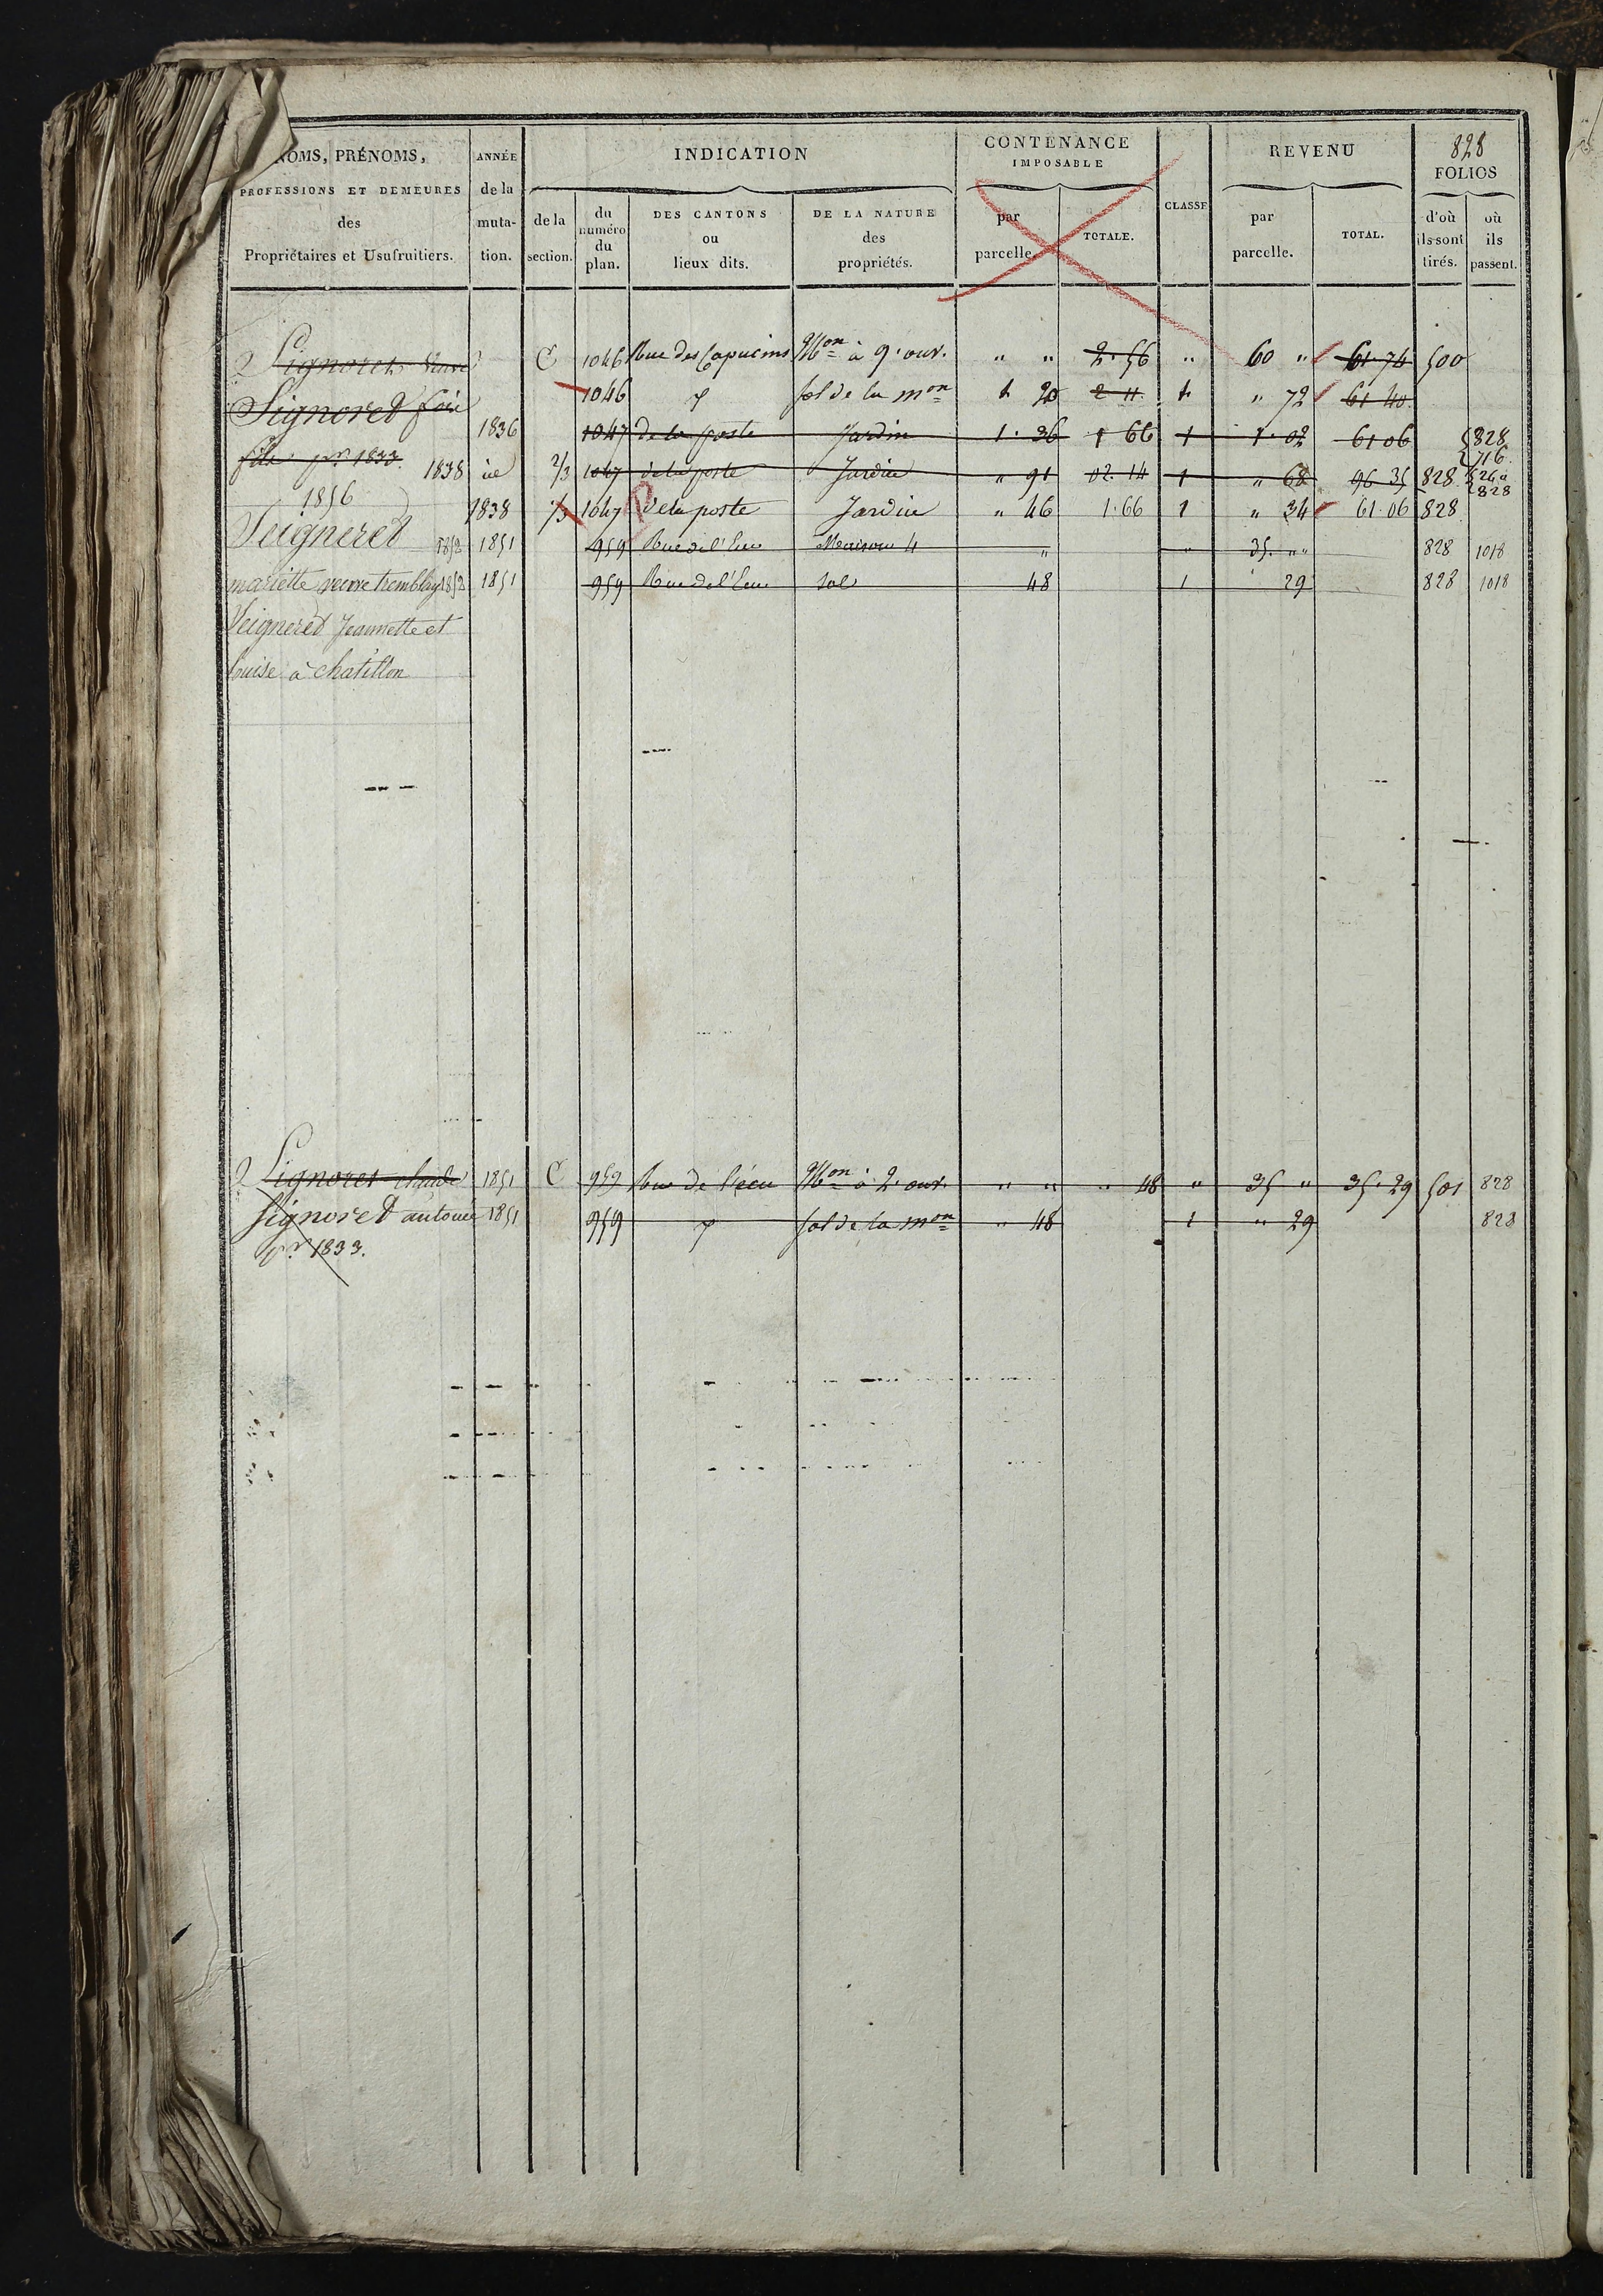 828
NOMS, PRÉNOMS, PROFESSIONS ET DEMEURES des Propriétaires et Usufruitiers. ANNÉE de la muta-tion. INDICATION de la section. du numéro du plan. DES CANTONS ou lieux dits. DE LA NATURE des propriétés. CONTENANCE IMPOSABLE par parcelle. TOTALE. CLASSE REVENU par parcelle. TOTAL. FOLIOS d'où ils sont tirés. où ils passent.
Signoret C 1046 Rue des Capucins Mon à 9. ouv. " " 2. 56 " 60 " 61. 74 500
Signoret 1046 sol de la mon 1 20 2 11 1 " 72 61 40
1836 1047 de la poste Jardin 1. 36 1 66 1 1. 02 61 06 828 716
fils pr. 1833. 1838 2/3 1047 de la poste Jardin " 91 02. 14 1 " 68 96 35 828 828
1856 1838 1/3 1047 de la poste Jardin " 46 1. 66 1 " 34 61. 06 828
Seigneret 1852 1851 959 Rue de l'Ecu Maison 4 " " 35. " " 828 1018
mariette veuve tremblay 1852 1851 959 Rue de l'Ecu sol 48 1 29 828 1018
Seigneret Jeannette et
Luise à chatillon
Signoret claude 1851 C 959 Rue de l'écu Mon à 2. ouv. " " " 48 " 35 " 35. 29 501 828
Signoret antoine 1851 959 sol de la mon " 48 1 " 29 828
pr. 1833.